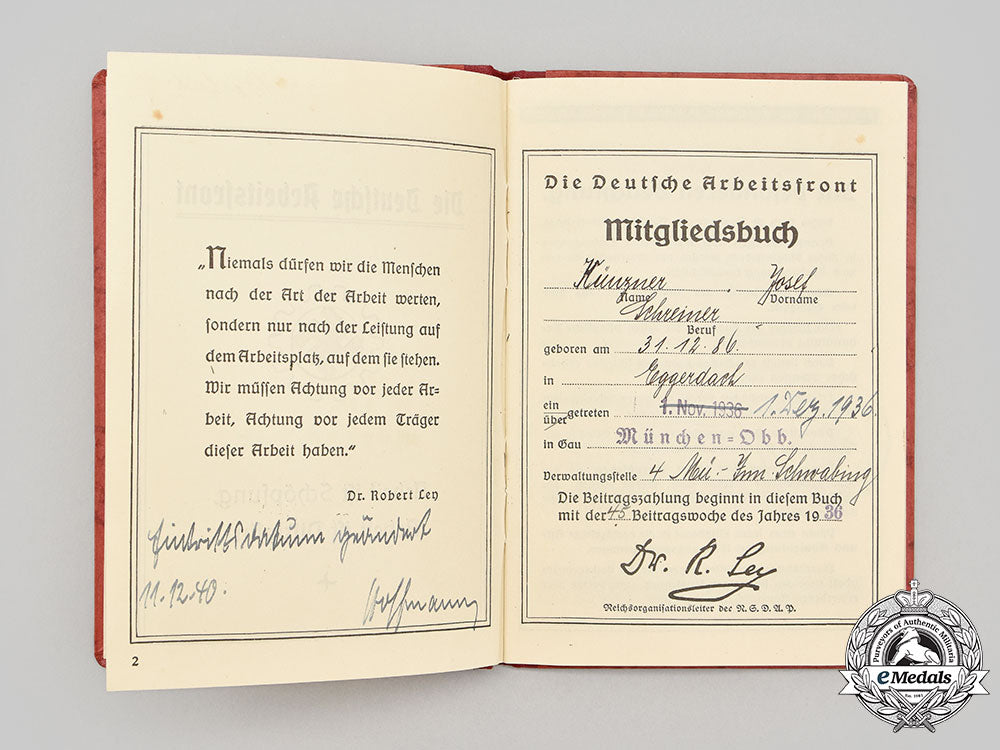 „Niemals dürfen wir die Menschen
nach der Art der Arbeit werten,
sondern nur nach der Leistung auf
dem Arbeitsplatz, auf dem sie stehen.
Wir müssen Achtung vor jeder Ar-
beit, Achtung vor jedem Träger
dieser Arbeit haben.“
Dr. Robert Ley
Eintrittsdatum geändert
11.12.40.
Hoffmann
2
Die Deutsche Arbeitsfront
Mitgliedsbuch
Künzner, Josef
Name Vorname
Schreiner
Beruf
geboren am 31.12.86.
in Eggerdach
ein
über getreten 1. Nov. 1936 1. Dez. 1936.
in Gau München-Obb.
Verwaltungsstelle 4 Mü.-Inn. Schwabing
Die Beitragszahlung beginnt in diesem Buch
mit der 45 Beitragswoche des Jahres 1936
Dr. R. Ley
Reichsorganisationsleiter der N.S.D.A.P.
eMedals
Purveyors of Authentic Militaria
eMedals